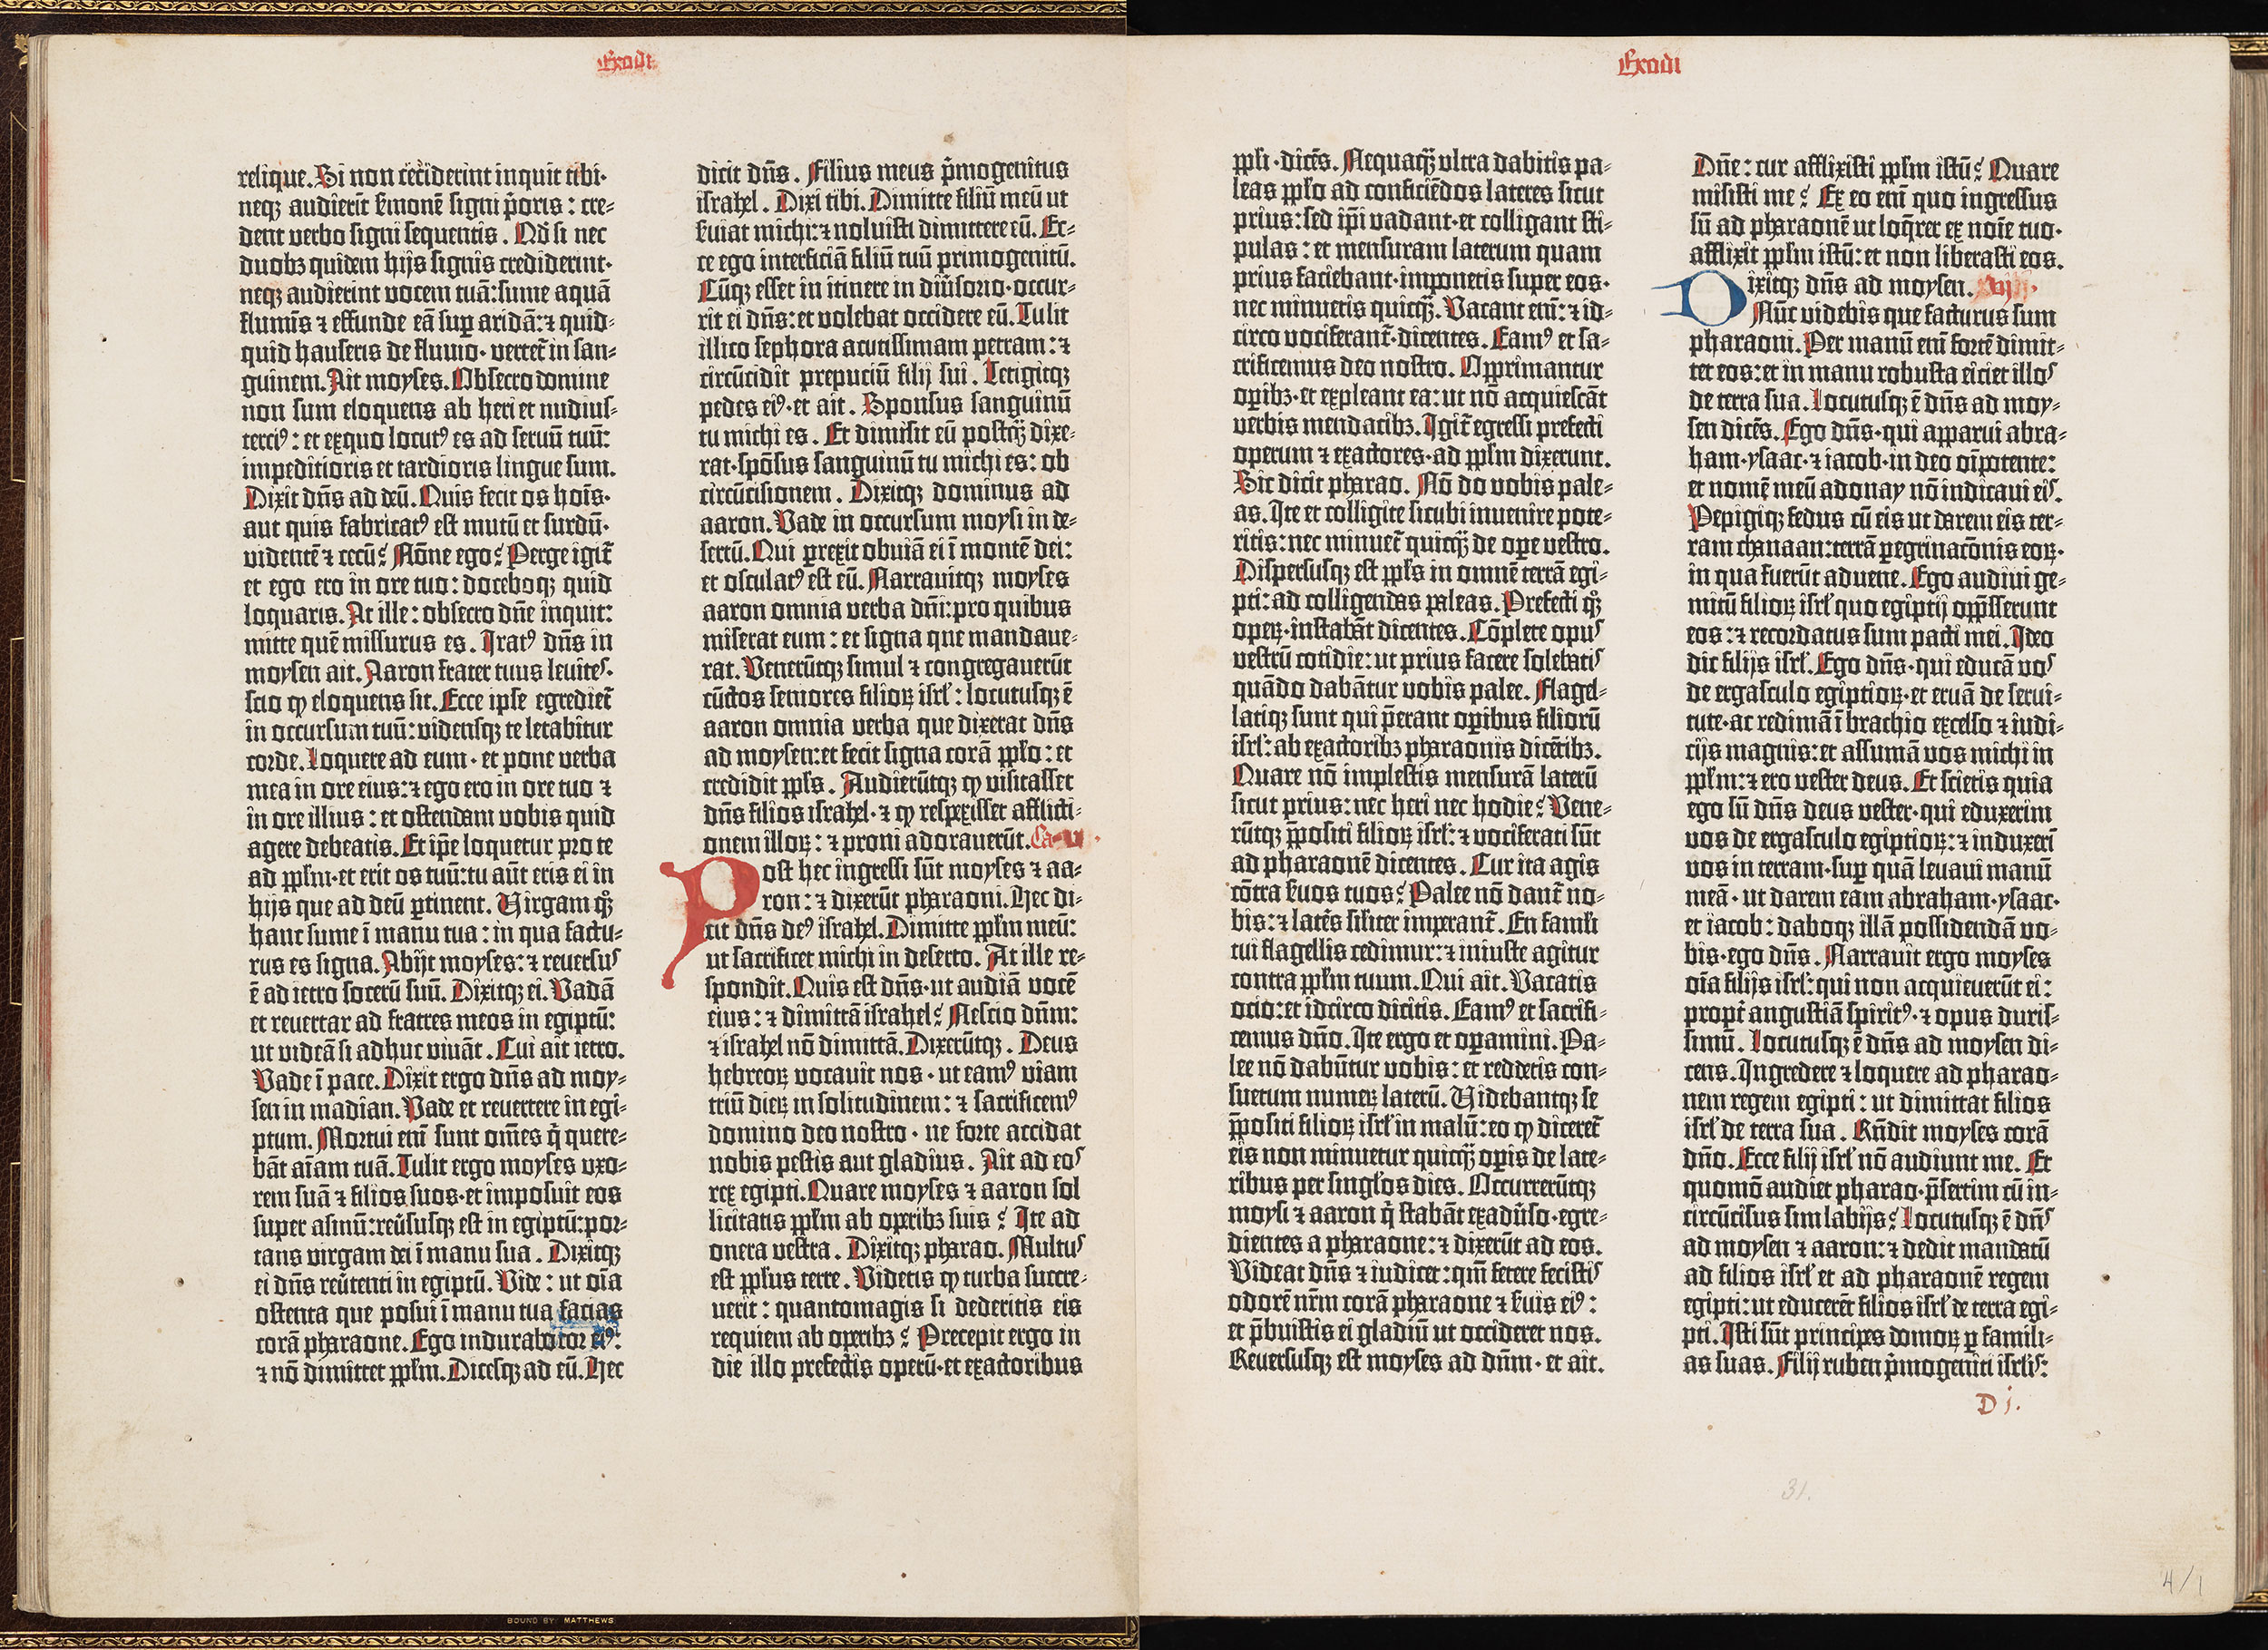 Exodi
relique. Si non crediderint inquit tibi·
neqʒ audierīt ẜmonē signi p̄oris : cre-
dent verbo signi sequentis . Qđ si nec
duobʒ quidem hijs signis crediderint·
neqʒ audierint vocem tuā: sume aquā
flumīs ⁊ effunde eā suꝑ aridā: ⁊ quid-
quid hauseris de fluuio· vertet̄ in san-
guinem. Ait moyses. Obsecro domine
non sum eloquens ab heri et nudius-
terciꝰ : et exquo locutꝰ es ad seruū tuū:
impeditioris et tardioris lingue sum.
Dixit dn̄s ad eū. Quis fecit os hoīs·
aut quis fabricatꝰ est mutū et surdū·
videntē ⁊ cecū? Nōne ego? Perge igit̄
et ego ero in ore tuo : doceboqʒ quid
loquaris. At ille : obsecro dn̄e inquit:
mitte quē missurus es . Iratꝰ dn̄s in
moysen ait. Aaron frater tuus leuites·
scio ꝙ eloquens sit. Ecce ipse egrediet̄
in occursum tuū: vidensqʒ te letabitur
corde. Loquere ad eum · et pone verba
mea in ore eius: ⁊ ego ero in ore tuo ⁊
in ore illius : et ostendam vobis quid
agere debeatis. Et ip̄e loquetur pro te
ad ppl̄m· et erit os tuū: tu aūt eris ei in
hijs que ad deū ꝑtinent. Virgam qꝫ
hanc sume ī manu tua : in qua factu-
rus es signa. Abijt moyses: ⁊ reuersus
ē ad ietro socerū suū. Dixitqʒ ei. Vadā
et reuertar ad fratres meos in egiptū:
ut videā si adhuc viuāt . Cui ait ietro.
Vade ī pace. Dixit ergo dn̄s ad moy-
sen in madian. Vade et reuertere in egi-
ptum. Mortui em̄ sunt om̄es q̄ quere-
bāt aīam tuā. Tulit ergo moyses vxo-
rem suā ⁊ filios suos· et imposuit eos
super asinū: reūsusqʒ est in egiptū: por-
tans virgam dei ī manu sua . Dixitqʒ
ei dn̄s reūtenti in egiptū. Vide : ut oīa
ostenta que posui ī manu tua facias
corā pharaone. Ego indurabo cor eiꝰ:
⁊ nō dimittet ppl̄m. Dicesqʒ ad eū. Hec
dicit dn̄s . Filius meus p̄mogenitus
israhel . Dixi tibi. Dimitte filiū meū ut
ẜuiat michi: ⁊ noluisti dimittere eū. Ec-
ce ego interficiā filiū tuū primogenitū.
Cūqʒ esset in itinere in diūsorio· occur-
rit ei dn̄s: et volebat occidere eū. Tulit
illico sephora acutissimam petram : ⁊
circūcidit prepuciū filij sui . Tetigitqʒ
pedes eiꝰ· et ait . Sponsus sanguinū
tu michi es . Et dimisit eū postqꝫ dixe-
rat· spōsus sanguinū tu michi es: ob
circūcisionem . Dixitqʒ dominus ad
aaron. Vade in occursum moysi in de-
sertū. Qui ꝑrexit obuiā ei ī montē dei:
et osculatꝰ est eū. Narrauitqʒ moyses
aaron omnia verba dn̄i: pro quibus
miserat eum : et signa que mandaue-
rat. Venerūtqʒ simul ⁊ congregauerūt
cūctos seniores filioꝝ isrl̄ : locutusqʒ ē
aaron omnia verba que dixerat dn̄s
ad moysen: et fecit signa corā ppl̄o : et
credidit ppl̄s . Audierūtqʒ ꝙ visitasset
dn̄s filios israhel · ⁊ ꝙ respexisset afflicti-
onem illoꝝ : ⁊ proni adorauerūt. Ca- v
Post hec ingressi sūt moyses ⁊ aa-
ron : ⁊ dixerūt pharaoni. Hec di-
cit dn̄s deꝰ israhel. Dimitte ppl̄m meū:
ut sacrificet michi in deserto. At ille re-
spondit. Quis est dn̄s· ut audiā vocē
eius : ⁊ dimittā israhel? Nescio dn̄m:
⁊ israhel nō dimittā. Dixerūtqʒ . Deus
hebreoꝝ vocauit nos · ut eamꝰ viam
triū dieꝝ in solitudinem : ⁊ sacrificemꝰ
domino deo nostro · ne forte accidat
nobis pestis aut gladius . Ait ad eos
rex egipti. Quare moyses ⁊ aaron sol
licitatis ppl̄m ab oꝑibʒ suis ? Ite ad
onera vestra . Dixitqʒ pharao. Multus
est ppl̄us terre . Videtis ꝙ turba succre-
uerit : quantomagis si dederitis eis
requiem ab oꝑibʒ ? Precepit ergo in
die illo prefectis operū· et exactoribus
Exodi
ppl̄i · dicēs. Nequaqꝫ vltra dabitis pa-
leas ppl̄o ad conficiēdos lateres sicut
prius: sed ip̄i vadant· et colligant sti-
pulas : et mensuram laterum quam
prius faciebant· imponetis super eos·
nec minuetis quicqꝫ. Vacant em̄: ⁊ id-
circo vociferant̄· dicentes. Eamꝰ et sa-
crificemus deo nostro. Opprimantur
oꝑibʒ· et expleant ea: ut nō acquiescāt
verbis mendacibʒ. Igit̄ egressi prefecti
operum ⁊ exactores· ad ppl̄m dixerunt.
Sic dicit pharao. Nō do vobis pale-
as. Ite et colligite sicubi inuenire pote-
ritis: nec minuet̄ quicqꝫ de oꝑe vestro.
Dispersusqʒ est ppl̄s in omnē terrā egi-
pti: ad colligendas paleas. Prefecti qꝫ
oꝑeꝝ· instabāt dicentes. Cōplete opus
vestrū cotidie: ut prius facere solebatis
quādo dabātur vobis palee. Flagel-
latiqʒ sunt qui p̄erant oꝑibus filiorū
isrl̄: ab exactoribʒ pharaonis dicētibʒ.
Quare nō impletis mensurā laterū
sicut prius: nec heri nec hodie? Vene-
rūtqʒ p̄positi filioꝝ isrl̄: ⁊ vociferati sūt
ad pharaonē dicentes. Cur ita agis
cōtra ẜuos tuos? Palee nō dant̄ no-
bis: ⁊ lateēs sil̄iter imperant̄. En faml̄i
tui flagellis cedimur: ⁊ iniuste agitur
contra ppl̄m tuum. Qui ait. Vacatis
ocio: et idcirco dicitis. Eamꝰ et sacrifi-
cemus dn̄o. Ite ergo et oꝑamini. Pa-
lee nō dabūtur vobis: et reddetis con-
suetum numeꝝ laterū. Videbantqʒ se
p̄positi filioꝝ isrl̄ in malū: eo ꝙ diceret̄
eis non minuetur quicqꝫ oꝑis de late-
ribus per singl̄os dies. Occurrerūtqʒ
moysi ⁊ aaron q̄ stabāt exadūso· egre-
dientes a pharaone: ⁊ dixerūt ad eos.
Videat dn̄s ⁊ iudicet: qm̄ fetere fecistis
odorē nr̄m corā pharaone ⁊ ẜuis eiꝰ:
et p̄buistis ei gladiū ut occideret nos.
Reuersusqʒ est moyses ad dn̄m · et ait.
Dn̄e: cur afflixisti ppl̄m istū? Quare
misisti me? Ex eo em̄ quo ingressus
sū ad pharaonē ut loq̄rer ex noīe tuo·
afflixit ppl̄m istū: et non liberasti eos.
Dixitqʒ dn̄s ad moysen.
Nūc videbis que facturus sum
pharaoni. Per manū em̄ fortē dimit-
tet eos: et in manu robusta eiciet illos
de terra sua. Locutusqʒ ē dn̄s ad moy-
sen dicēs. Ego dn̄s· qui apparui abra-
ham· ysaac· ⁊ iacob· in deo oīpotente:
et nomē meū adonay nō indicaui eis.
Pepigiqʒ fedus cū eis ut darem eis ter-
ram chanaan: terrā ꝑegrinacōnis eoꝝ·
in qua fuerūt aduene. Ego audiui ge-
mitū filioꝝ isrl̄ quo egiptij opp̄sserunt
eos : ⁊ recordatus sum pacti mei. Ideo
dic filijs isrl̄. Ego dn̄s· qui educā vos
de ergasculo egiptioꝝ· et eruā de serui-
tute· ac redimā ī brachio excelso ⁊ iudi-
cijs magnis: et assumā vos michi in
ppl̄m: ⁊ ero vester deus. Et scietis quia
ego sū dn̄s deus vester· qui eduxerim
vos de ergasculo egiptioꝝ: ⁊ induxerī
vos in terram· suꝑ quā leuaui manū
meā · ut darem eam abraham· ysaac·
et iacob : daboqʒ illā possidendā vo-
bis· ego dn̄s. Narrauit ergo moyses
oīa filijs isrl̄: qui non acquieuerūt ei :
propt̄ angustiā spiritꝰ· ⁊ opus duris-
simū. Locutusqʒ ē dn̄s ad moysen di-
cens. Ingredere ⁊ loquere ad pharao-
nem regem egipti : ut dimittat filios
isrl̄ de terra sua . Rn̄dit moyses corā
dn̄o. Ecce filij isrl̄ nō audiunt me. Et
quomō audiet pharao· p̄sertim cū in-
circūcisus sim labijs? Locutusqʒ ē dn̄s
ad moysen ⁊ aaron: ⁊ dedit mandatū
ad filios isrl̄ et ad pharaonē regem
egipti: ut educerēt filios isrl̄ de terra egi-
pti. Isti sūt principes domoꝝ ꝑ famili-
as suas. Filij ruben p̄mogeniti isrl̄is:
D j.
31.
4/1
BOUND BY MATTHEWS